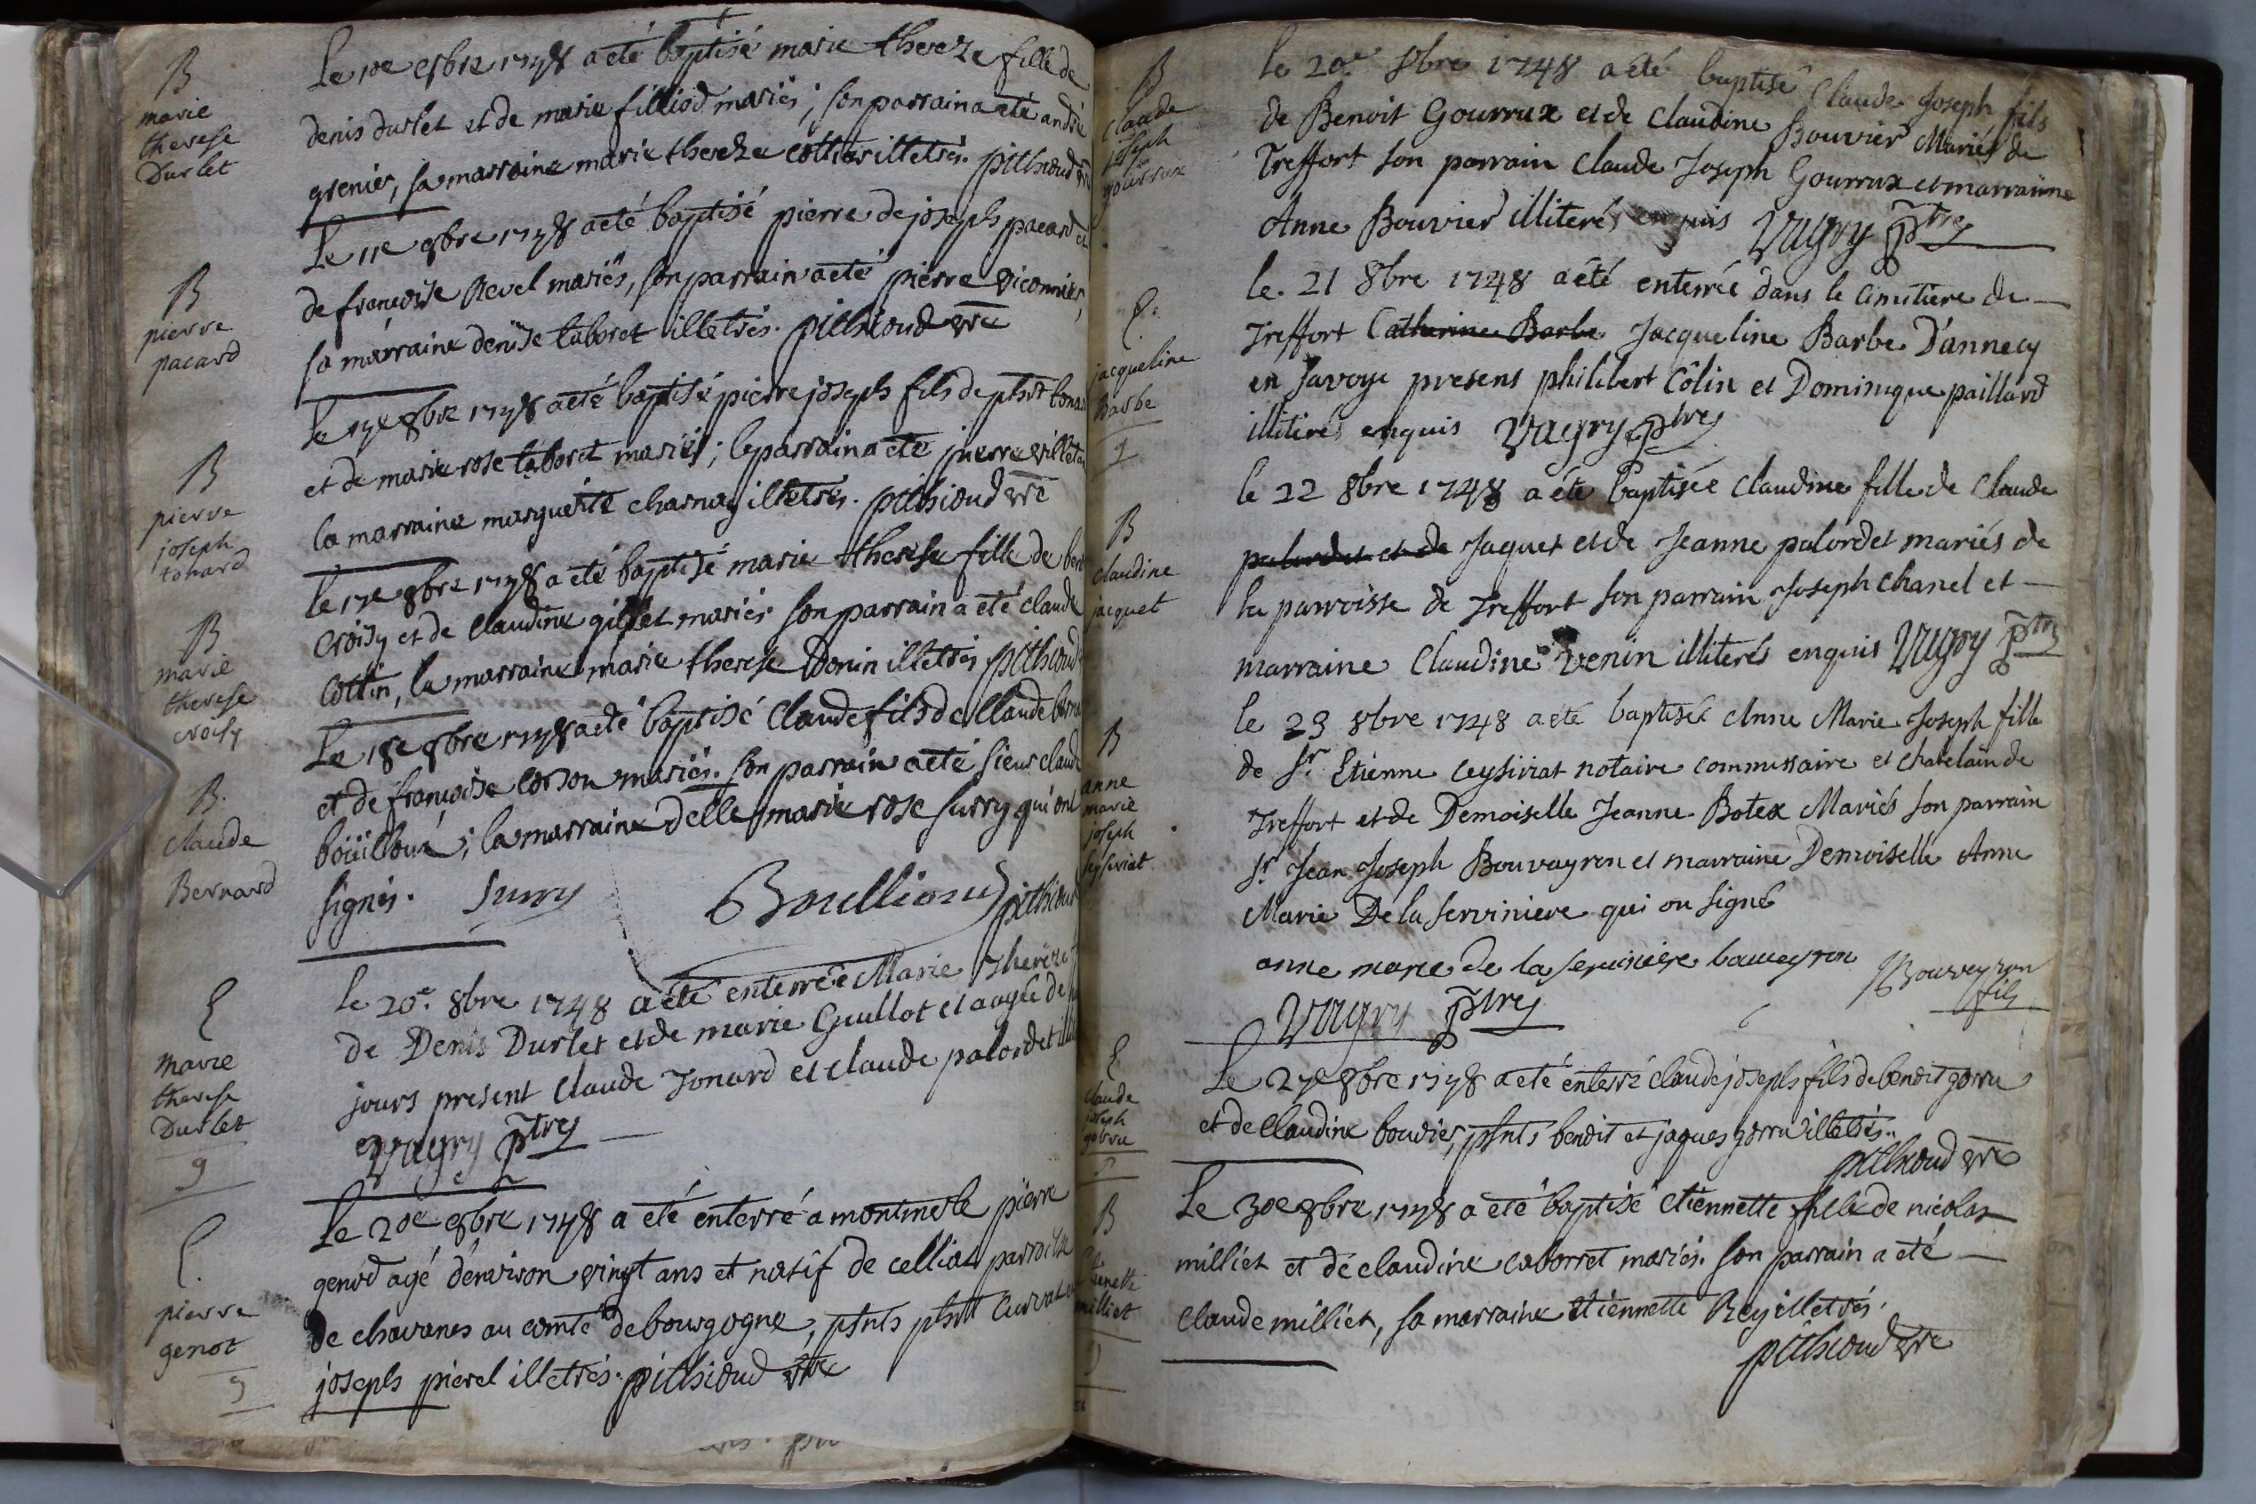 B
marie
therese
Durlet
Le 10e 8bre 1748 a eté baptisé marie thereze fille de
denis durlet et de marie filliod mariés; son parrain a eté andré
grenier, sa marraine marie thereze cottier illetrés. pithioud vre
B
pierre
pacard
Le 11e 8bre 1748 a eté baptisé pierre de joseph pacard et
de françoise Revel mariés, son parrain a eté pierre viconnier,
sa marraine denise taboret illetrés. pithioud vre
B
pierre
joseph
tonard
et de marie rose taboret mariés; le parrain a eté pierre
la marraine marguerite charnay illetrés. pithioud vre
B
marie
therese
croisy
Le 17e 8bre 1748 a eté baptisé marie therese fille de
croisy et de claudine gillet mariés son parrain a eté claude
cottin, la marraine marie therese Donin illetrés pithioud
B.
claude
Bernard
Le 18e 8bre 1748 a eté baptisé Claude fils de Claude
et de françoise corson mariés. son parrain a eté sieur claude
boüilloux; la marraine delle marie rose surry qui ont
signés. Surry Boullioud pithioud
E
marie
therese
Durlet
9
le 20e. 8bre 1748 a eté enterrée Marie Thereze
de Denis Durlet et de marie Guillot et aagée de
jours present Claude Tonard et claude palordet
Vugry Ptre
E.
pierre
genot
9
Le 20e 8bre 1748 a eté enterré a montmerle pierre
genod agé d'environ vingt ans et natif de celliat parroisse
de chavanes au comté de bourgogne, psnts phbt curvat et
joseph pierel illetrés. pithioud vre
B
claude
joseph
gourrux
le 20e 8bre 1748 a été baptisé Claude Joseph fils
de Benoit Gourrux et de Claudine Bouvier Mariés de
Treffort son parrain Claude Joseph Gourrux et marraine
Anne Bouvier illiterés enquis Vugry Ptre
E.
jacqueline
Barbe
9
le. 21 8bre 1748 a été enterrée dans le cimitiere de
Treffort Catherine Barbe Jacqueline Barbe D'annecy
en Savoye presens philibert Côlin et Dominique paillard
illiterés enquis Vugry Ptre
B
claudine
jacquet
le 22 8bre 1748 a été baptisée Claudine fille de Claude
palordet et de Jaquet et de Jeanne palordet mariés de
la parroisse de Treffort son parrain Joseph Chanel et
marraine Claudine Venin illiterés enquis Vugry Ptre
B
anne
marie
joseph
seysiriat
le 23 8bre 1748 a été baptisée Anne Marie Joseph fille
de Sr. Etienne Ceysiriat notaire commissaire et chatelain de
Treffort et de Demoiselle Jeanne Botex Mariés son parrain
Sr Jean Joseph Bouvayron et marraine Demoiselle Anne
Marie De la Serviniere qui on signé
anne marie de la serviniere bauveyron Bouveyron
fils
Vugry Ptre
E
claude
joseph
Le 27e 8bre 1748 a eté enterré claude joseph fils de benoit gorru
et de claudine bouvier, psnts benoit et jaques gorru illetrés..
pithioud vre
B
milliet
Le 30e 8bre 1748 a eté baptisé etiennette fille de nicolas
milliet et de claudine caborret mariés. son parrain a eté
claude milliet, sa marraine etiennette Rey illetrés.
pithioud vre